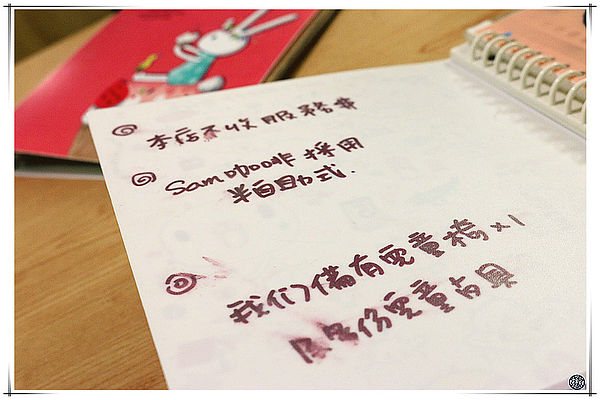 本店不收服務費
Samの咖啡 採用
半自助式.
我们備有兒童椅x1
及多份兒童占具